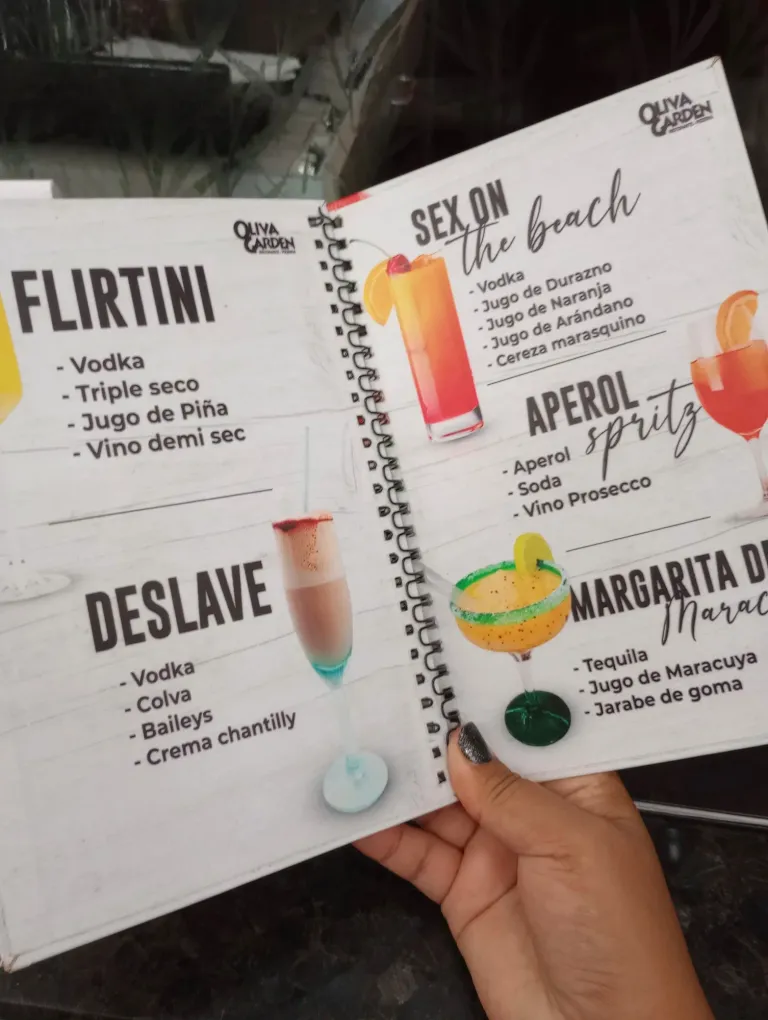 OLIVA
GARDEN
FLIRTINI
- Vodka
- Triple seco
- Jugo de Piña
- Vino demi sec
DESLAVE
- Vodka
- Colva
- Baileys
- Crema chantilly
OLIVA
GARDEN
SEX ON
the beach
- Vodka
- Jugo de Durazno
- Jugo de Naranja
- Jugo de Arándano
- Cereza marasquino
APEROL
spritz
- Aperol
- Soda
- Vino Prosecco
MARGARITA DE
Marac
- Tequila
- Jugo de Maracuya
- Jarabe de goma